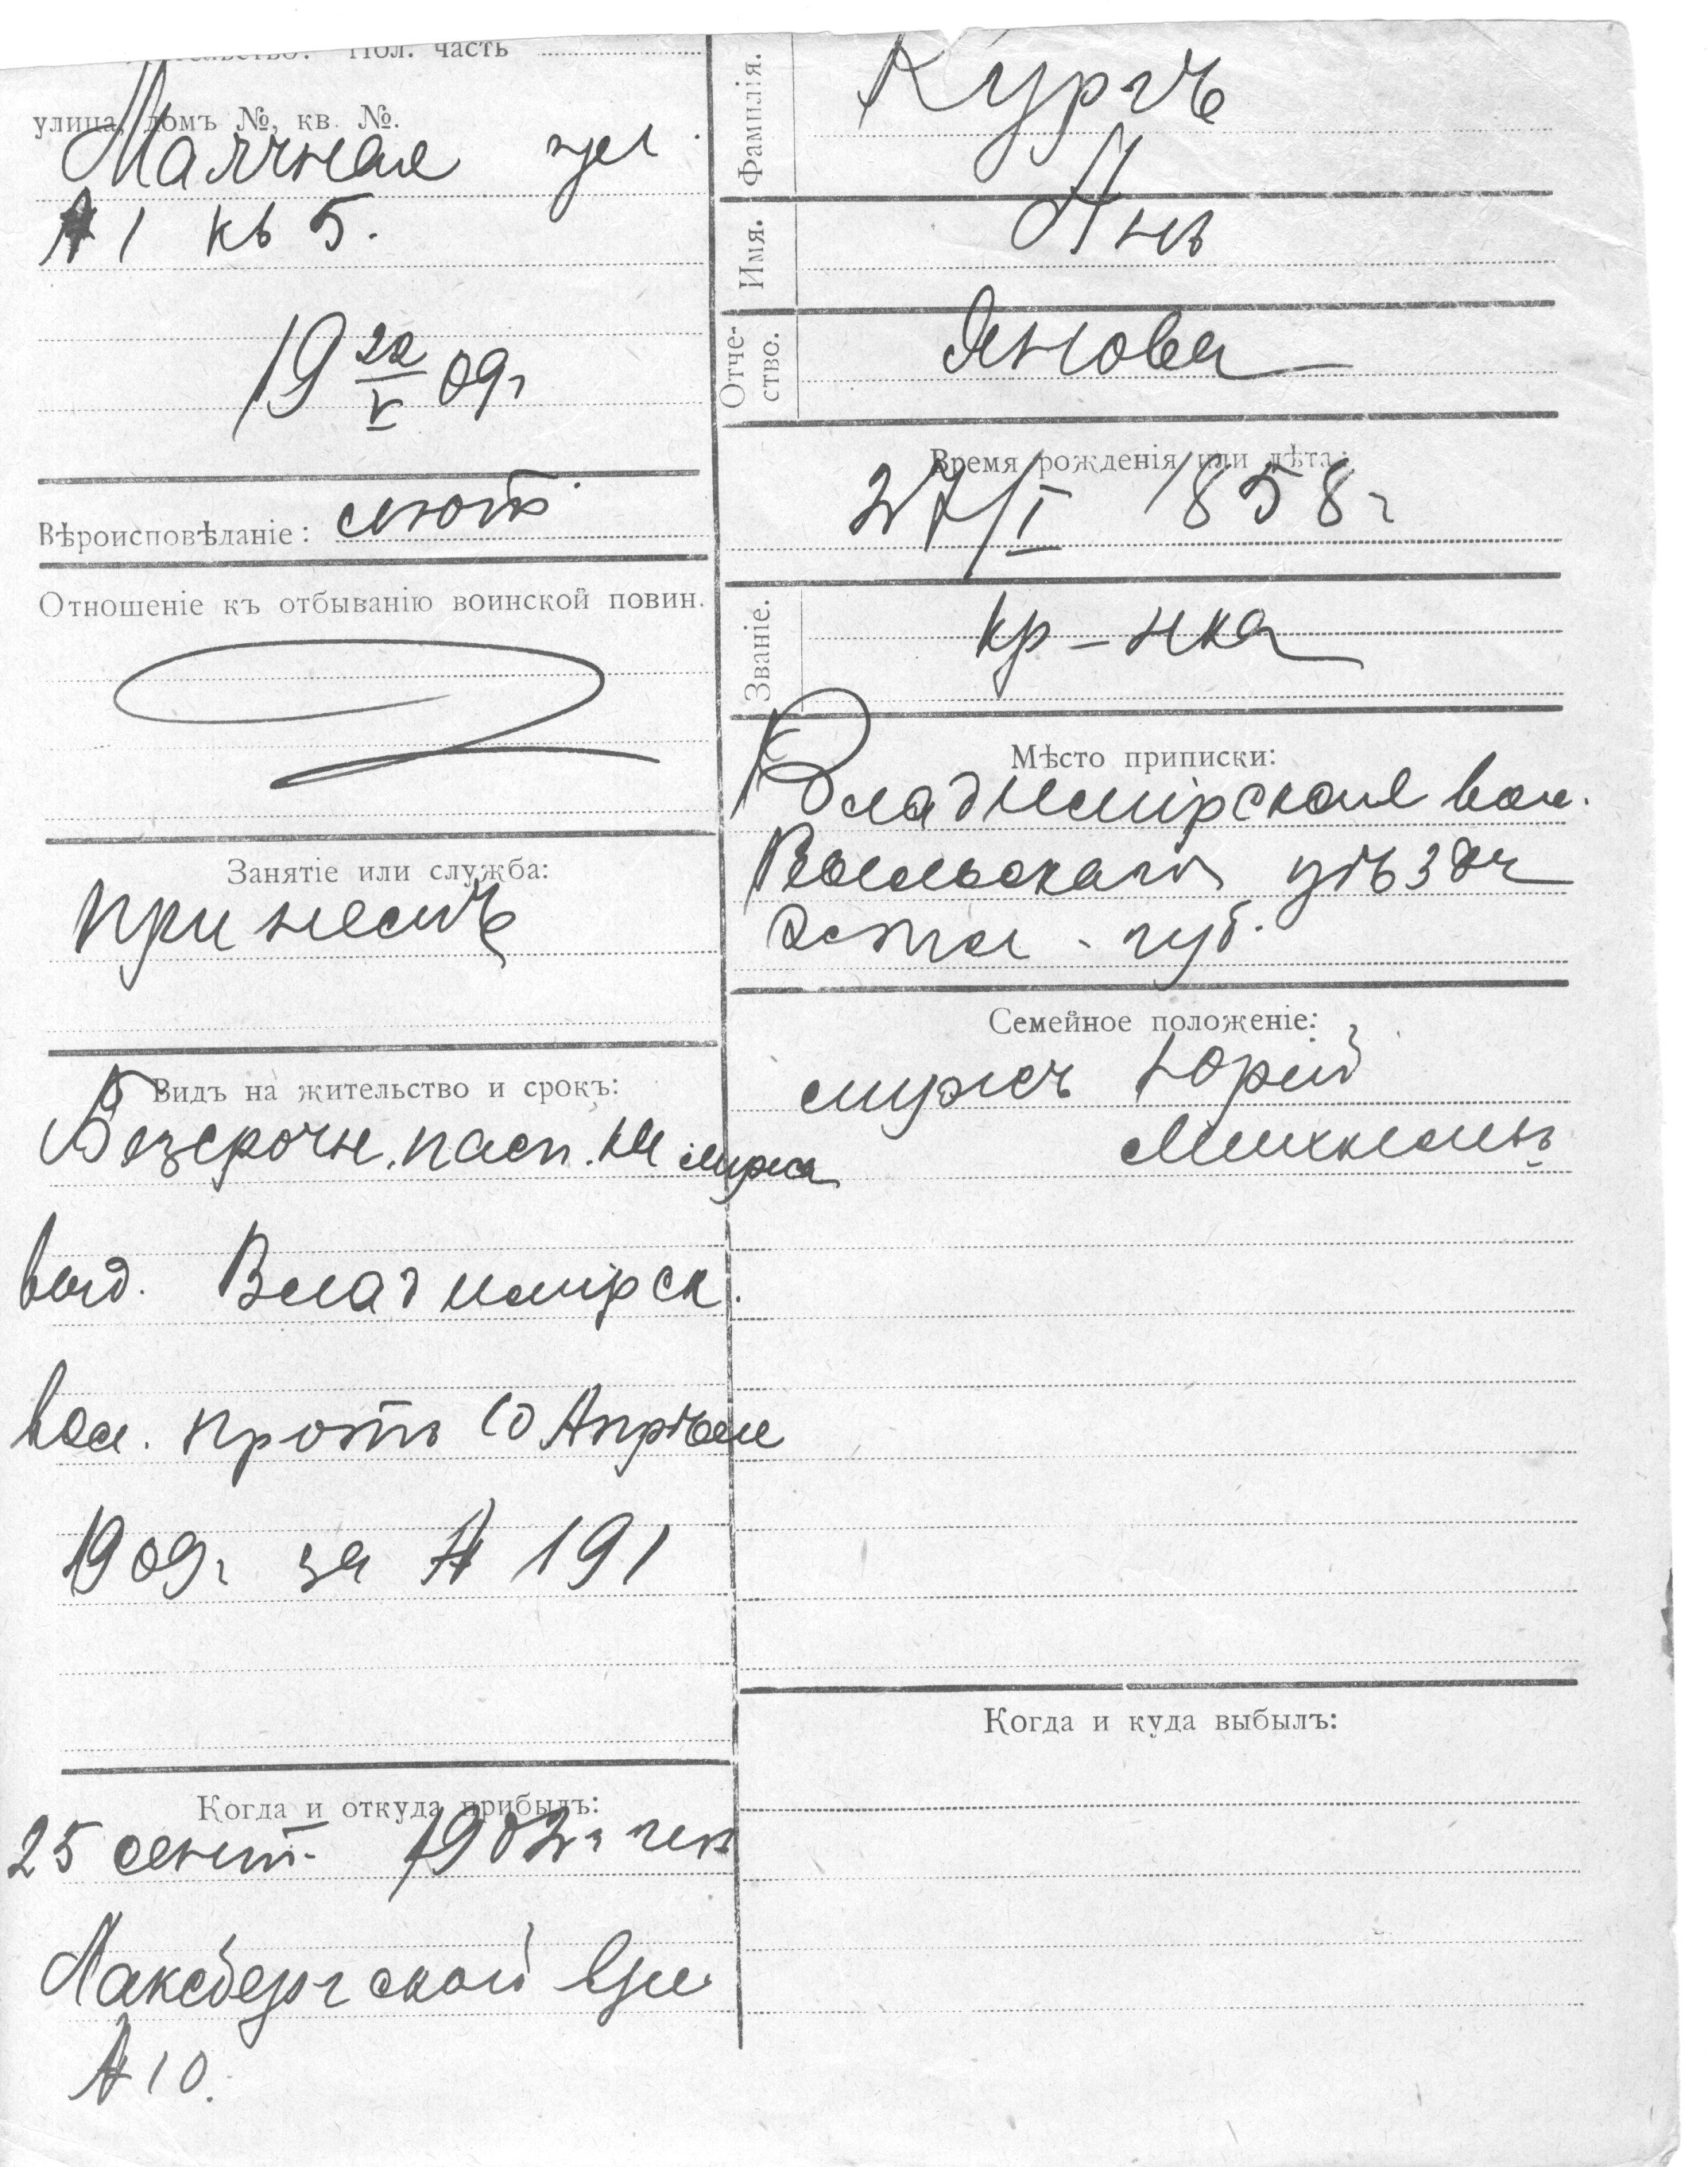 Пол. часть
улица, домъ №, кв. №.
Маячная ул.
№ 1 кв 5.
19 22/V 09г
Вѣроисповѣданіе: лют.
Отношеніе къ отбыванію воинской повин.
Занятіе или служба:
при немъ
Видъ на жительство и срокъ:
Безсрочн. пасп. кн мужа
выд. Владимірск.
вол. прот 10 Апрѣля
1909г за № 191
Когда и откуда прибылъ:
25 сент. 1902г изъ
Лаксбергской ул
№ 10.
Фамилія. Кургъ
Имя.
Отчество. Янова
Время рожденія или лѣта:
27/I 1858г
Званіе. кр-нка
Мѣсто приписки:
Владимірская вол.
уѣзда
Эстл. губ.
Семейное положеніе:
мужъ Юрій
Когда и куда выбылъ: